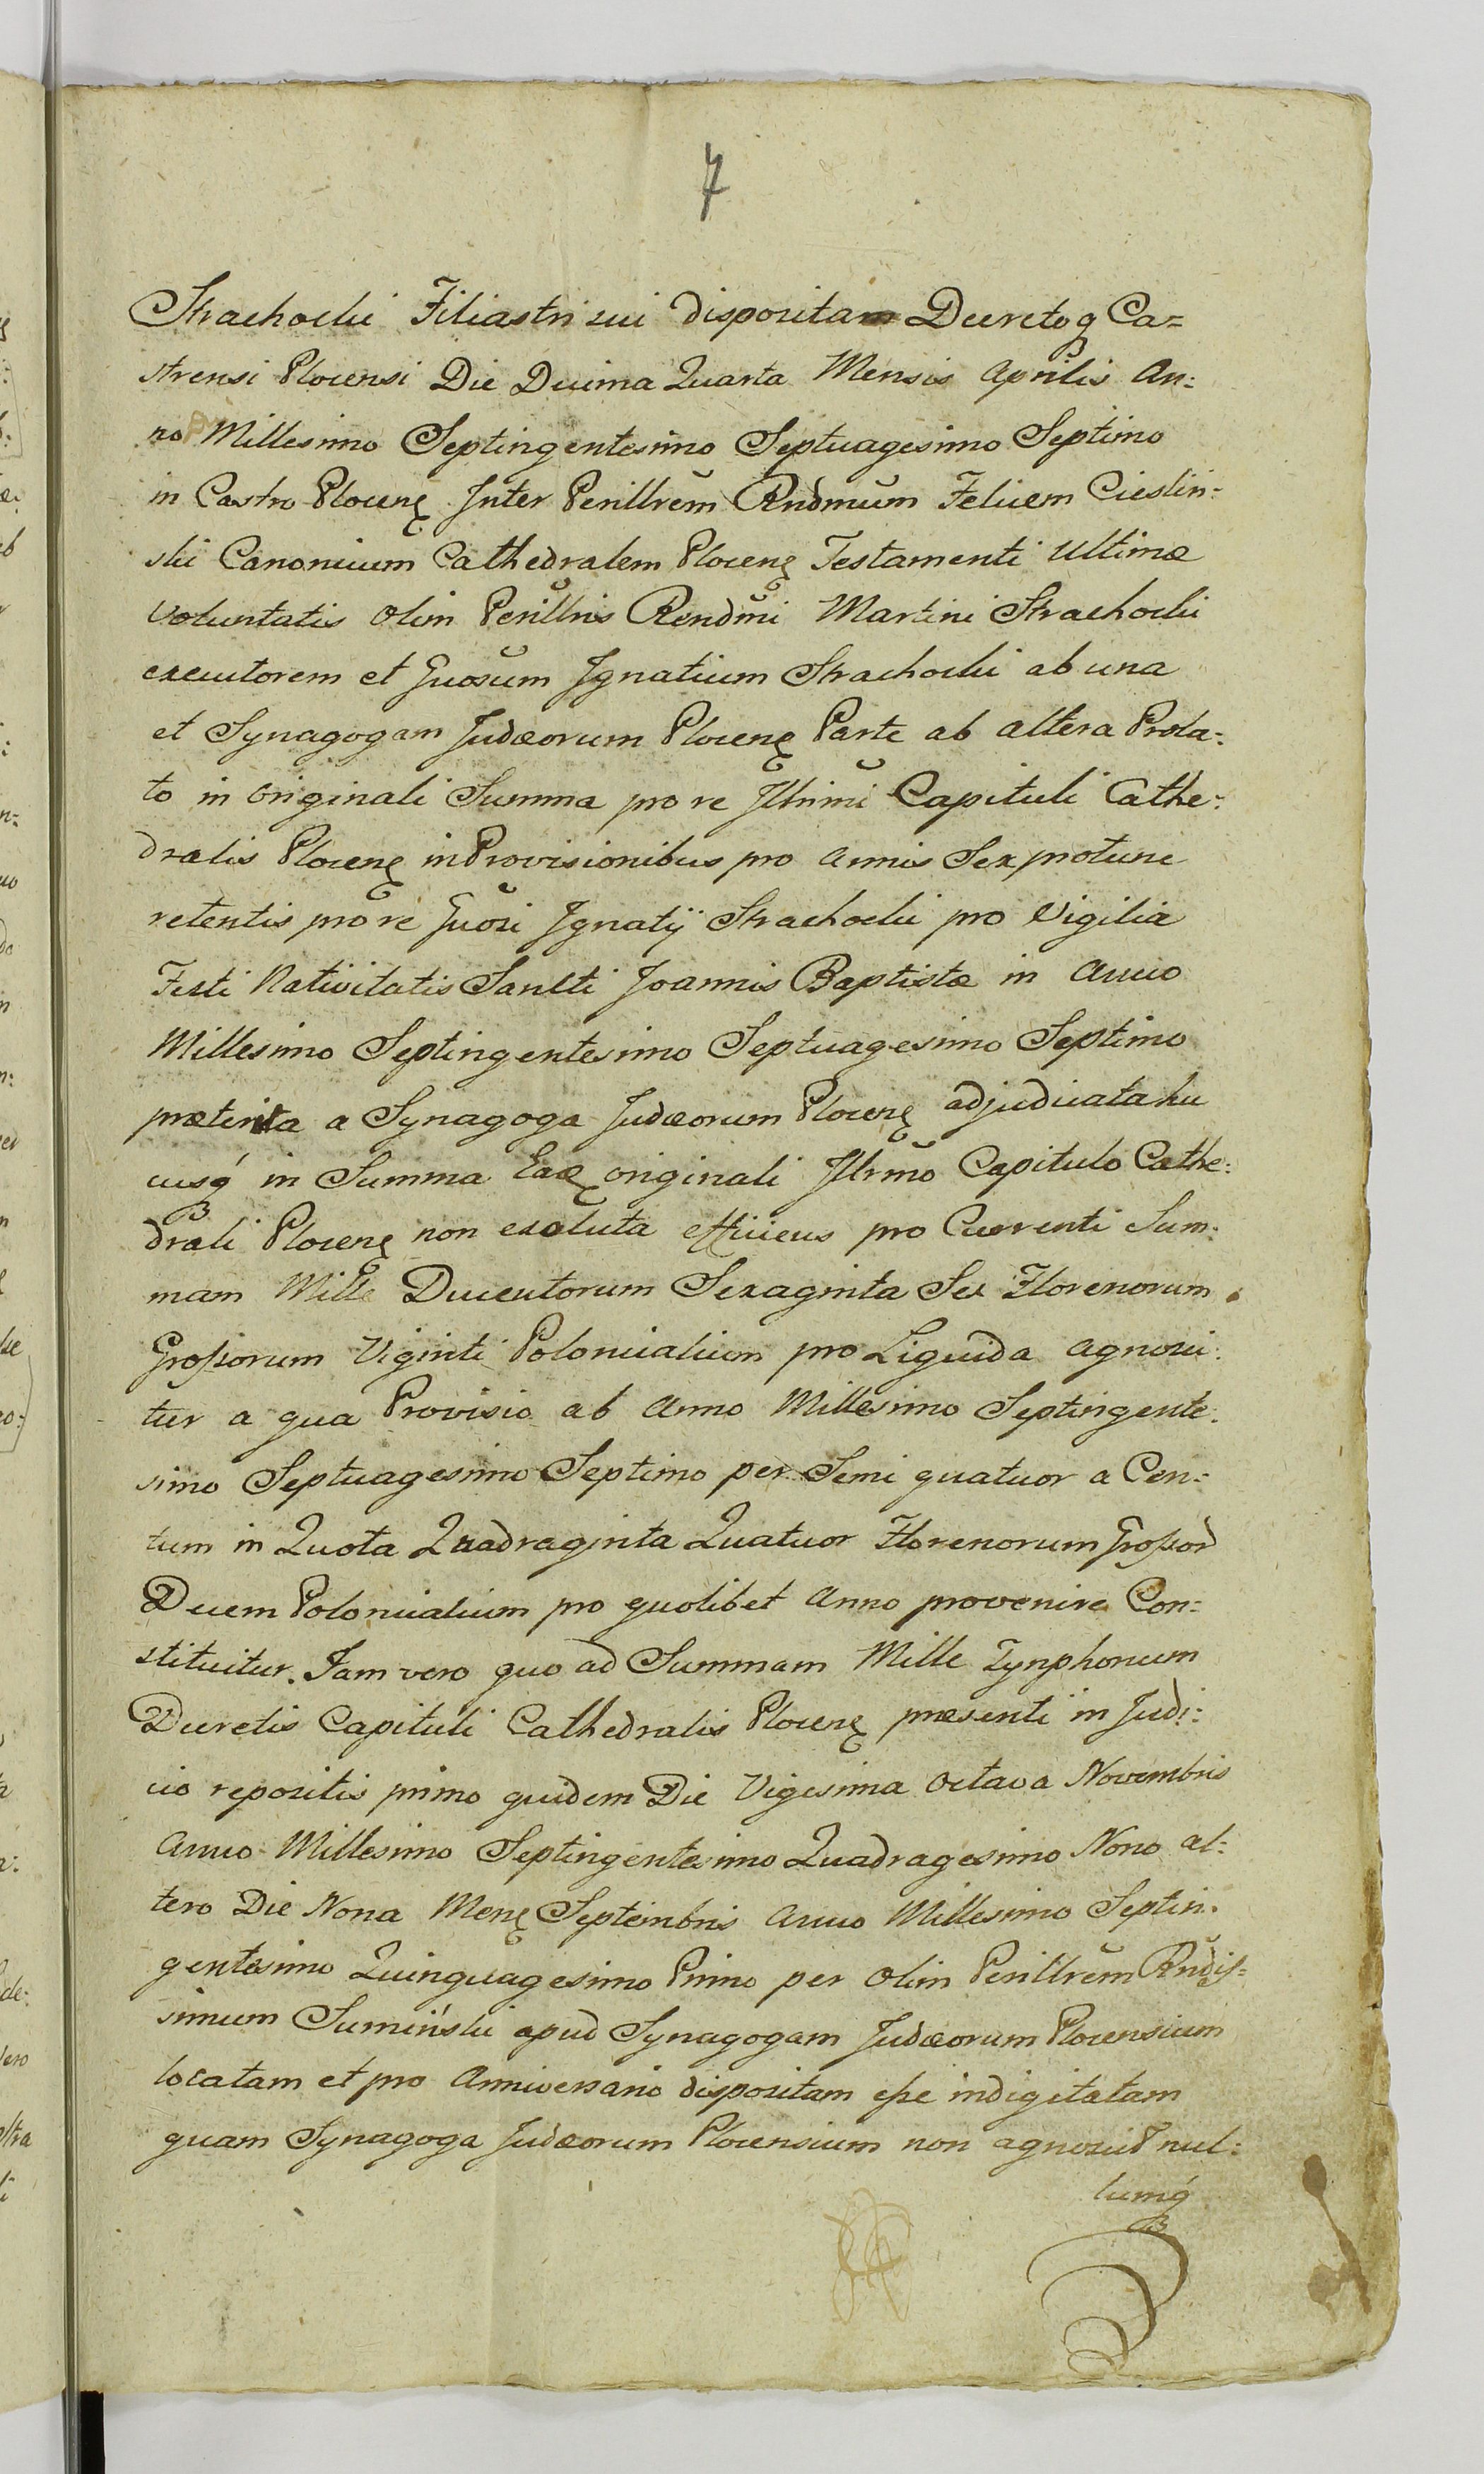 7
Strachocki Filiastri sui dispositam Decretoq Ca=
strensi Plocensi Die Decima Quarta Mensis Aprilis An:
no Millesimo Septingentesimo Septuagesimo Septimo
in Castro Plocenę Inter Perillrem Rndmum Felicem Cieslin:
ski Canonicum Cathedralem Plocenę Testamenti Ultimæ
Voluntatis olim Perillris Rendmi Martini Strachocki
executorem et Gnosum Ignatium Strachocki ab una
et Synagogam Judæorum Plocenę Parte ab altera Prola:
to in originali Summa pro re Illrimi Capituli Cathe:
dralis Plocenę in Provisionibus pro annis Sex protunc
retentis pro re Gnosi Ignatij Strachocki pro Vigilia
Festi Nativitatis Sancti Joannis Baptistæ in Anno
Millesimo Septingentesimo Septuagesimo Septimo
præterita a Synagoga Judæorum Plocenę adjudicata hu
cusq́ in Summa Eaę originali Illrmo Capitulo Cathe:
drali Plocenę non exoluta efficiens pro Currenti Sum:
mam Mille Ducentorum Sexaginta Sex Florenorum
Grossorum Viginti Polonicalium pro Liquida agnosci:
tur a qua Provisio ab Anno Millesimo Septingente:
simo Septuagesimo Septimo per Semi quatuor a Cen:
tum in Quota Quadraginta Quatuor Florenorum Grossor
Decem Polonicalium pro quolibet Anno provenire Con:
stituitur. Jam vero quo ad Summam Mille Tynphonum
Decretis Capituli Cathedralis Plocenę præsenti in Judi:
cio repositis primo quidem Die Vigesima Octava Novembris
Anno Millesimo Septingentesimo Quadragesimo Nono al:
tero Die Nona Menę Septembris Anno Millesimo Septin:
gentesimo Quinquagesimo Primo per olim Perillrem Rndis:
simum Sumiński apud Synagogam Judæorum Plocensium
locatam et pro Anniversario dispositam esse indigitatam
quam Synagoga Judæorum Plocensium non agnoscit nul:
lumq́